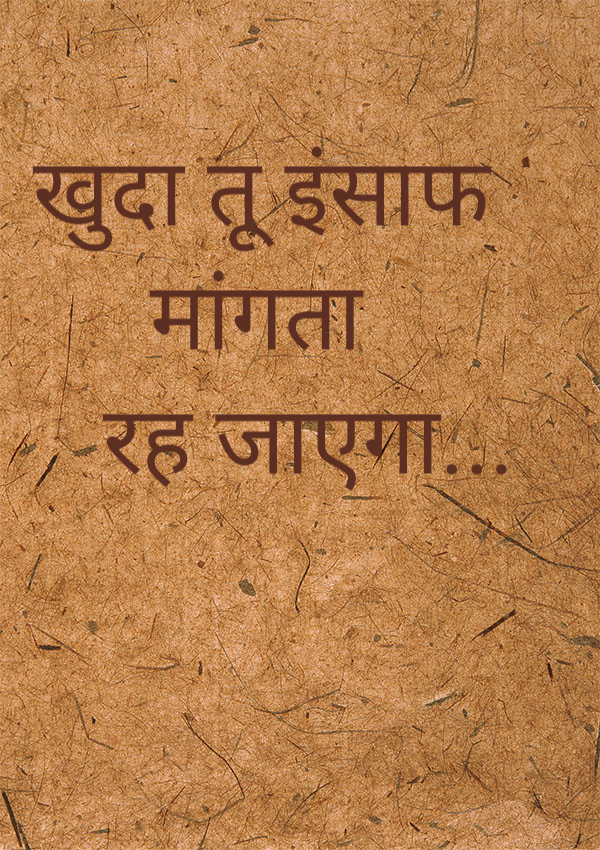 खुदा तू इंसाफ
मांगता
रह जाएगा...